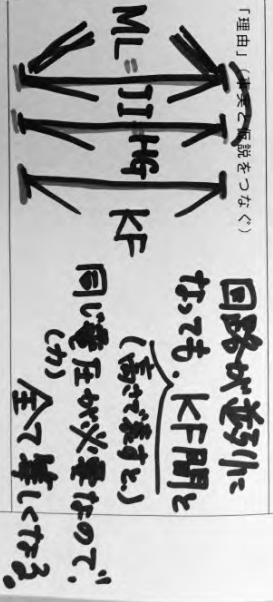 「理由」(事実と仮説をつなぐ)
ML=JI=HG KF
回路が並列に
なっても、KF間と
(高さで表すと、)
同じ電圧が必要なので、
(力)
全て等しくなる。